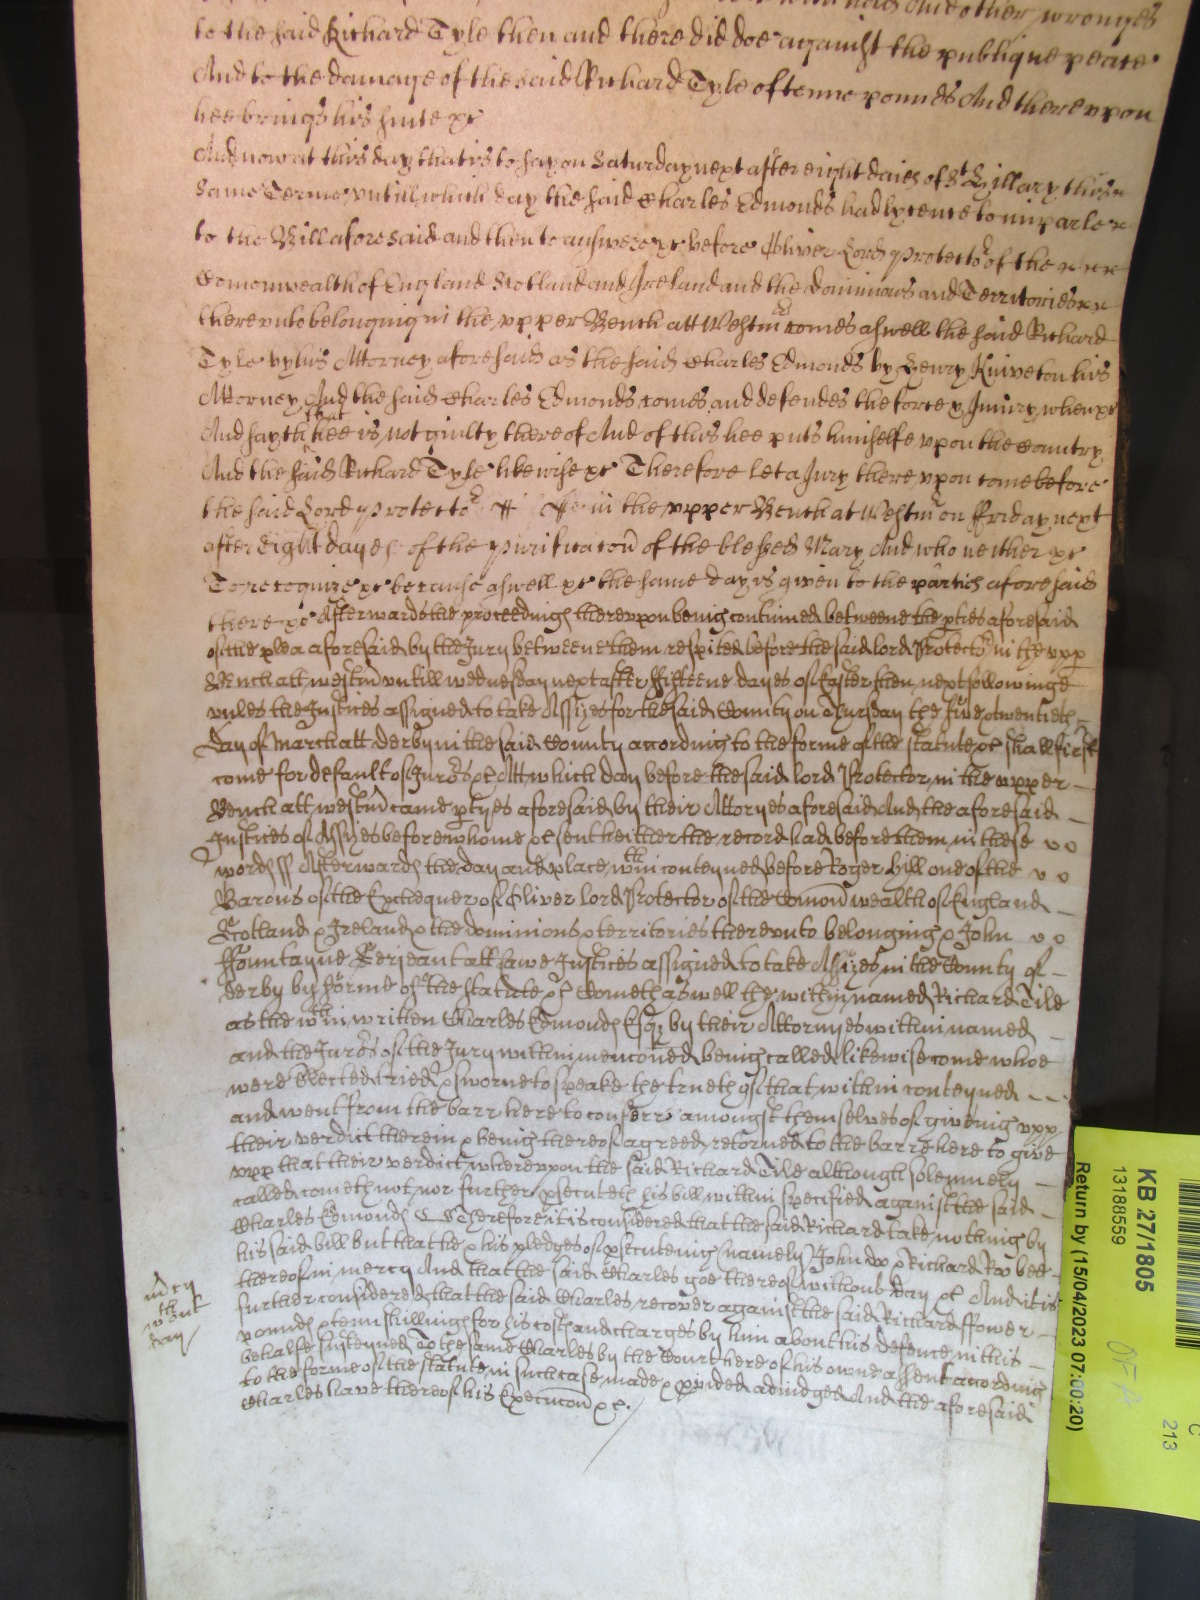 And other wronges
to the said Richard Tyle then and there did doe against the publique peace
And to the damage of the said Richard Tyle of tenne pounds And thereupon
hee brings his suite &c
And now at this day that is to say on Saturday next after eight daies of St Hillary this
same Terme untill which day the said Charles Edmonds had lycence to imparle
to the Bill aforesaid and then to answere &c before Oliver Lord Protector of the
Comonwealth of England Scotland and Ireland and the Dominions and Territories
thereunto belonging in the upper Bench att Westmr comes aswell the said Richard
Tyle by his Attorney aforesaid as the said Charles Edmonds by Henry Kniveton his
Attorney And the said Charles Edmonds comes and defendes the force & Iniury when &c
And sayth that hee is not guilty thereof And of this hee puts himselfe upon the Country
And the said Richard Tyle likewise &c Therefore let a Jury thereupon come before
the said Lord Protector in the upper Bench at Westmr on Friday next
after Eight dayes of the Purificacon of the blessed Mary And who neither &c
To recognize &c because aswell &c the same day is given to the parties aforesaid
there &c Afterwards the proceedings thereuppon being continued betweene the pties aforesaid
of the plea aforesaid by the Jury betweene them respited before the said lord Protector in the upp
Bench att westmr untill wednesday next after fifteene dayes of Easter then next followinge
unles the Justices assigned to take Assizes for the said County on Thursday the five & twentieth
day of March att derby in the said County according to the forme of the statute &c shall first
come for default of Jurors &c Att which day before the said lord Protector in the upper
Bench att westmr came ptyes aforesaid by their Attornyes aforesaid And the aforesaid
Justices of Assizes before whome &c sent hether the record had before them in these
wordes ss Afterwards the day and place wthin conteyned before Roger Hill one of the
Barons of the Exchequer of Oliver lord Protector of the Comonwealth of England
Scotland & Ireland & the dominions & territories thereunto belonging & John
ffountayne Serjeant att lawe Justices assigned to take Assizes in the County of
derby by forme of the statute &c Cometh aswell the within named Richard Tile
as the wthin written Charles Edmonds Esqr by their Attornyes within named
and the Jurors of the Jury within menconed being called likewise come whoe
were elected tried & sworne to speake the trueth of that within conteyned
and went from the barr here to conferr amongst themselves of giveing upp
their verdict therein & being thereof agreed retorned to the barre here to give
upp that their verdict whereuppon the said Richard Tile although solemnely
called cometh not nor further psecuteth his bill within specified against the said
Charles Edmonds Therefore it is considered that the said Richard take nothing by
his said bill but that he & his pledges of psecuteing (namely) John Doo & Richard Roo bee
thereof in mercy And that the said Charles goe thereof without day &c And it is
further considered that the said Charles recover against the said Richard ffower
pounds & tenn shillings for his costs and charges by him about his defence in this
behalfe susteyned To the same Charles by the Court here of his owne assent according
to the forme of the statute in such case made & pvided adiudged And the aforesaid
Charles have thereof his Execucon &c.
mercy
wthout
day
KB 27/1805
13188559
Return by (15/04/2023 07:00:20)
C
213